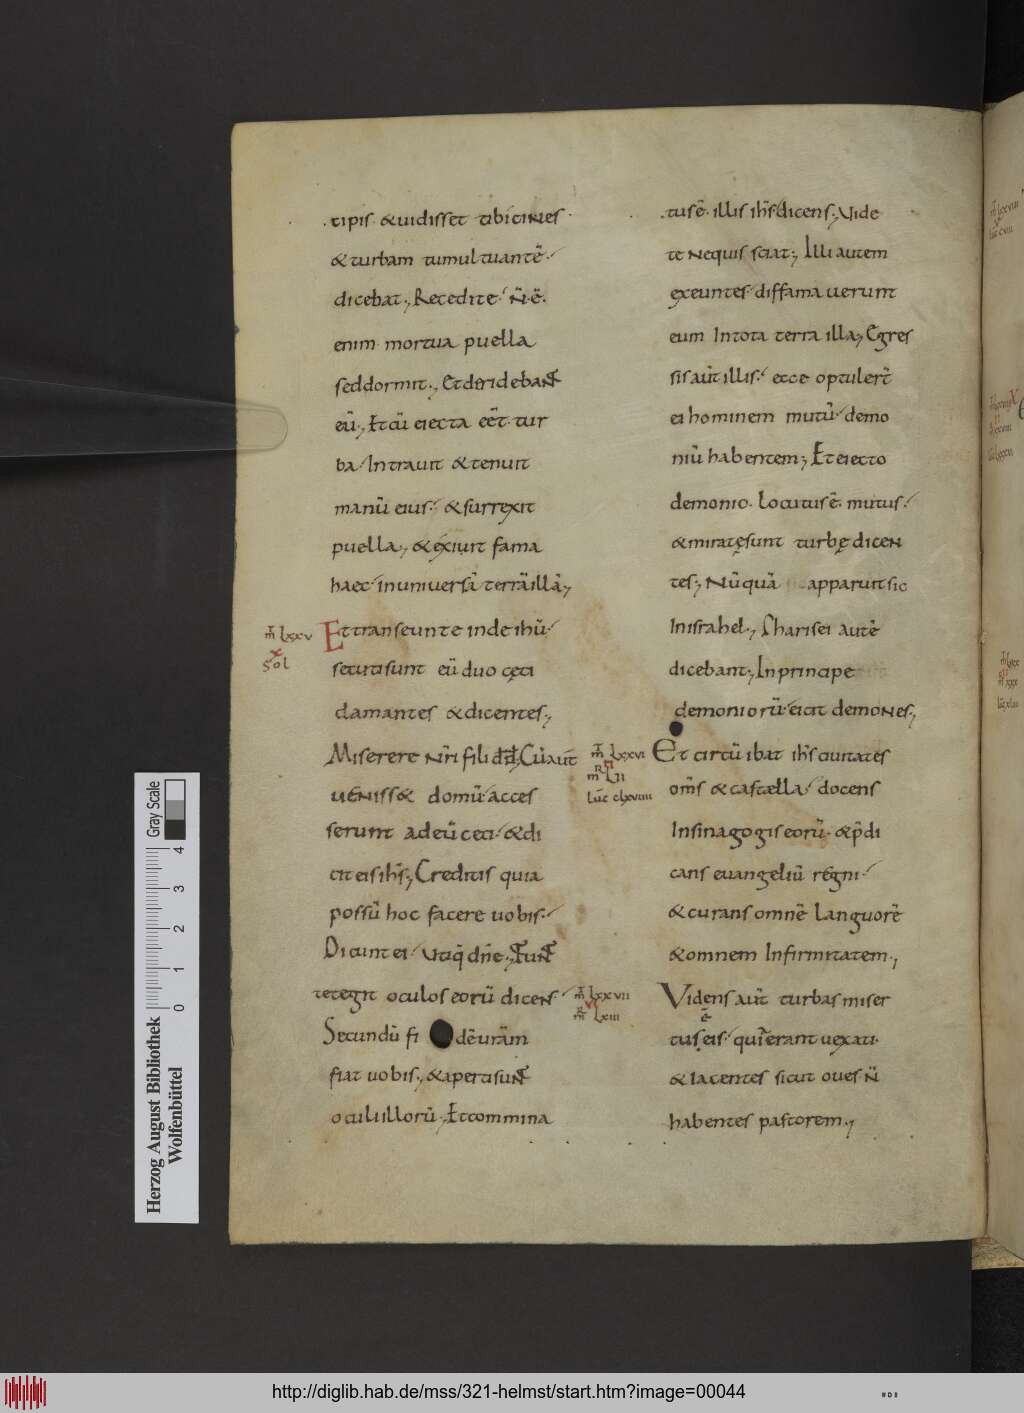 tipis · & uidisset tibicines ·
& turbam tumultuantē
dicebat ; Recedite · n̄ ē ·
enim mortua puella
sed dormit ; Et deridebant
eū ; Et cū eiecta eēt tur
ba Intrauit & tenuit
manū eius · & surrexit
puella ; & exiuit fama
haec in uniuersā terrā illā ;
m̄ lxxv
x
sol
Et transeunte inde ihū
secuti sunt eū duo cęci
clamantes & dicentes ;
Miserere nr̄i fili dd̄ ; Cū aut̄
uenisset domū acces
serunt ad eū ceci · & di
cit eis ih̄s ; Creditis quia
possū hoc facere uobis ·
Dicunt ei utiq̄ dn̄e ; Tunc
tetegit oculos eorū dicens
Secundū fi dē uram̄
fiat uobis ; & aperti sunt
oculi illorū ; Et commina
tus ē · illis ih̄s dicens ; Vide
te nequis sciat ; Illi autem
exeuntes diffamauerunt
eum In tota terra illa ; Egres
sis aut̄ illis · ecce optulert̄
ei hominem mutū demo
niū habentem ; Et eiecto
demonio · locutus ē · mutus ·
& miratę sunt turbę dicen
tes ; Nūquā apparuit sic
In israhel ; Pharisei autē
dicebant ; In principe
demoniorū eicit demones ;
m̄ lxxvi
VI
m̄ LII
Luc̄ clxviiii
Et circū ibat ih̄s ciuitates
om̄s & castella docens
In sinagogis eorū · & p̄di
cans euangeliū regni ·
& curans omnē languorē
& omnem Infirmitatem ·
m̄ lxxvii
VI
m̄r Lxiii
Videns aut̄ turbas miser
ē
tus eis quī erant uexati ·
& iacentes sicut oues n̄
habentes pastorem ;
Gray Scale
0 1 2 3 4
Herzog August Bibliothek
Wolfenbüttel
http://diglib.hab.de/mss/321-helmst/start.htm?image=00044